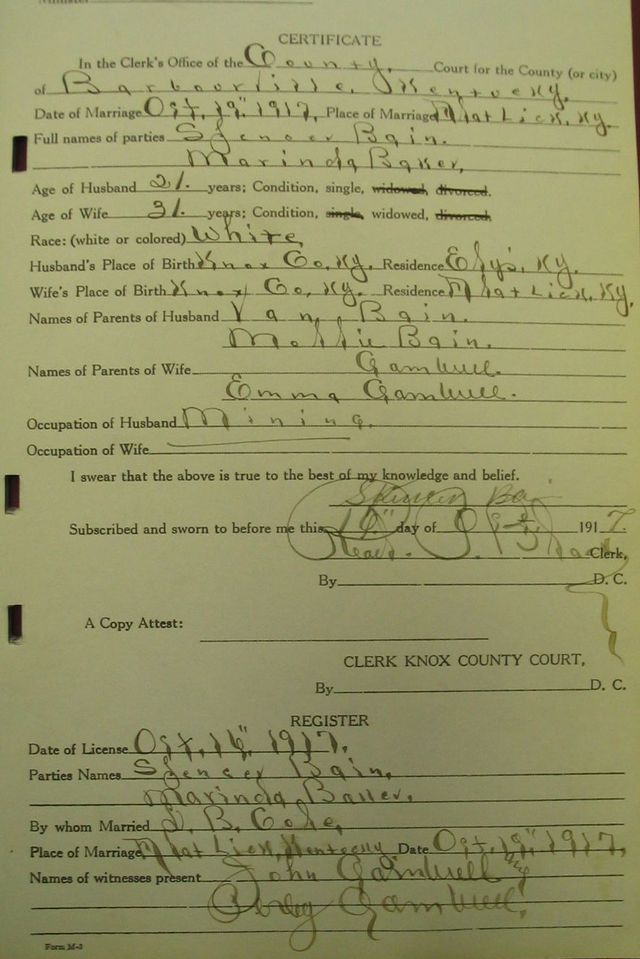 CERTIFICATE
In the Clerk's Office of the County, Court for the County (or city)
of Barbourville, Kentucky.
Date of Marriage Oct, 19", 1917, Place of Marriage Flat Lick, Ky.
Full names of parties Spencer Bain.
Marinda Baker,
Age of Husband 21. years; Condition, single, widowed, divorced.
Age of Wife 31. years; Condition, single, widowed, divorced
Race: (white or colored) White,
Husband's Place of Birth Knox Co, Ky. Residence Elys, Ky.
Wife's Place of Birth Knox Co, Ky. Residence Flat Lick, Ky,
Names of Parents of Husband Van, Bain.
Mollie Bain.
Names of Parents of Wife Gambrell.
Emma Gambrell.
Occupation of Husband Mining.
Occupation of Wife
I swear that the above is true to the best of my knowledge and belief.
Spencer Bain
Subscribed and sworn to before me this 16" day of Oct, 1917.
Read. Clerk,
By D. C.
A Copy Attest:
CLERK KNOX COUNTY COURT,
By D. C.
REGISTER
Date of License Oct, 16", 1917,
Parties Names Spencer Bain,
Marinda Baker,
By whom Married J. B. Cole,
Place of Marriage Flat Lick, Kentucky Date Oct, 19" 1917,
Names of witnesses present John Gambrell
Gambrell,
Form M-3